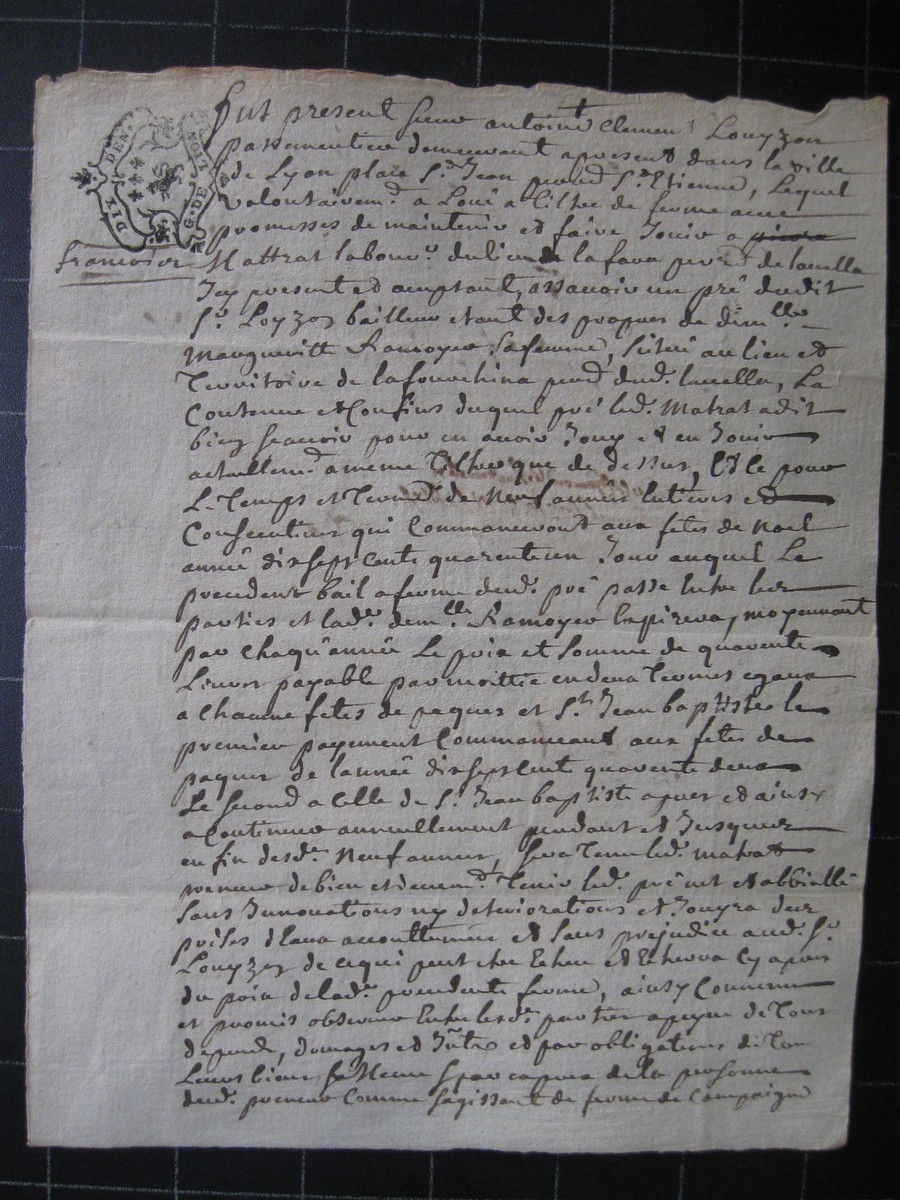 DIX DEN.
G. DE LION
françois
fut present sieur antoine Clement Louyzon
passementier demeurant apresent dans la ville
de Lyon place St. Jean paroisse St. Etienne, Lequel
volontairemt. a Loué a tiltre de ferme avec
promesses de maintenir et faire Jouir a pierre
Mattrat labourr. du lieu de la fava de
Icy present et acceptant, assavoir un pré dudit
Sr. Loyzon bailleur etant des propres de dlle.
Margueritte Ramoyer sa femme, Scitué au lieu et
Territoire de lafourchina dud. La
Contenue et Confins duquel pré led. Matrat a dit
bien scavoir pour en avoir Jouy et en Jouir
actuellemt. a meme tiltre que de dessus, Et ce pour
Le Temps et Terme de Neuf années Entieres et
Consecutives qui Commanceront aux fetes de Noel
année dix sept cents quarente un Jour auquel Le
precedent bail a ferme dud. pré passé Entre les
parties et lad. demlle. Ramoyer Expirera, moyennant
par Chaqu'année Le prix et Somme de quarente
Livres payable par moittié en deux Termes egaux
a Chacune fetes de paques et St. Jean baptiste le
premier payement Commanceant aux fetes de
paques de l'année dix sept cent quarente deux
Le second a Celle de St. Jean baptiste apres et ainsy
a Continuer annuellement pendant et Jusques
en fin desd. Neuf années, Sera Tenu led. matrat
preneur de bien et deuemt. Tenir led. pré net et abbiallé
Sans Innovations ny deteriorations et Jouyra des
prises d'eaux accouttumées et Sans prejudice aud. Sr.
Louyzon de ce qui peut etre Echeu et Echerra Cy apres
du prix de lad. precedente ferme, ainsy Convenu
et promis observer Entre lesd. parties a peyne de Tous
depends, domages et Intts. et par obligations de Tous
Leurs biens Mesme par de la personne
dud. preneur Comme Sagissant de ferme de Campaigne